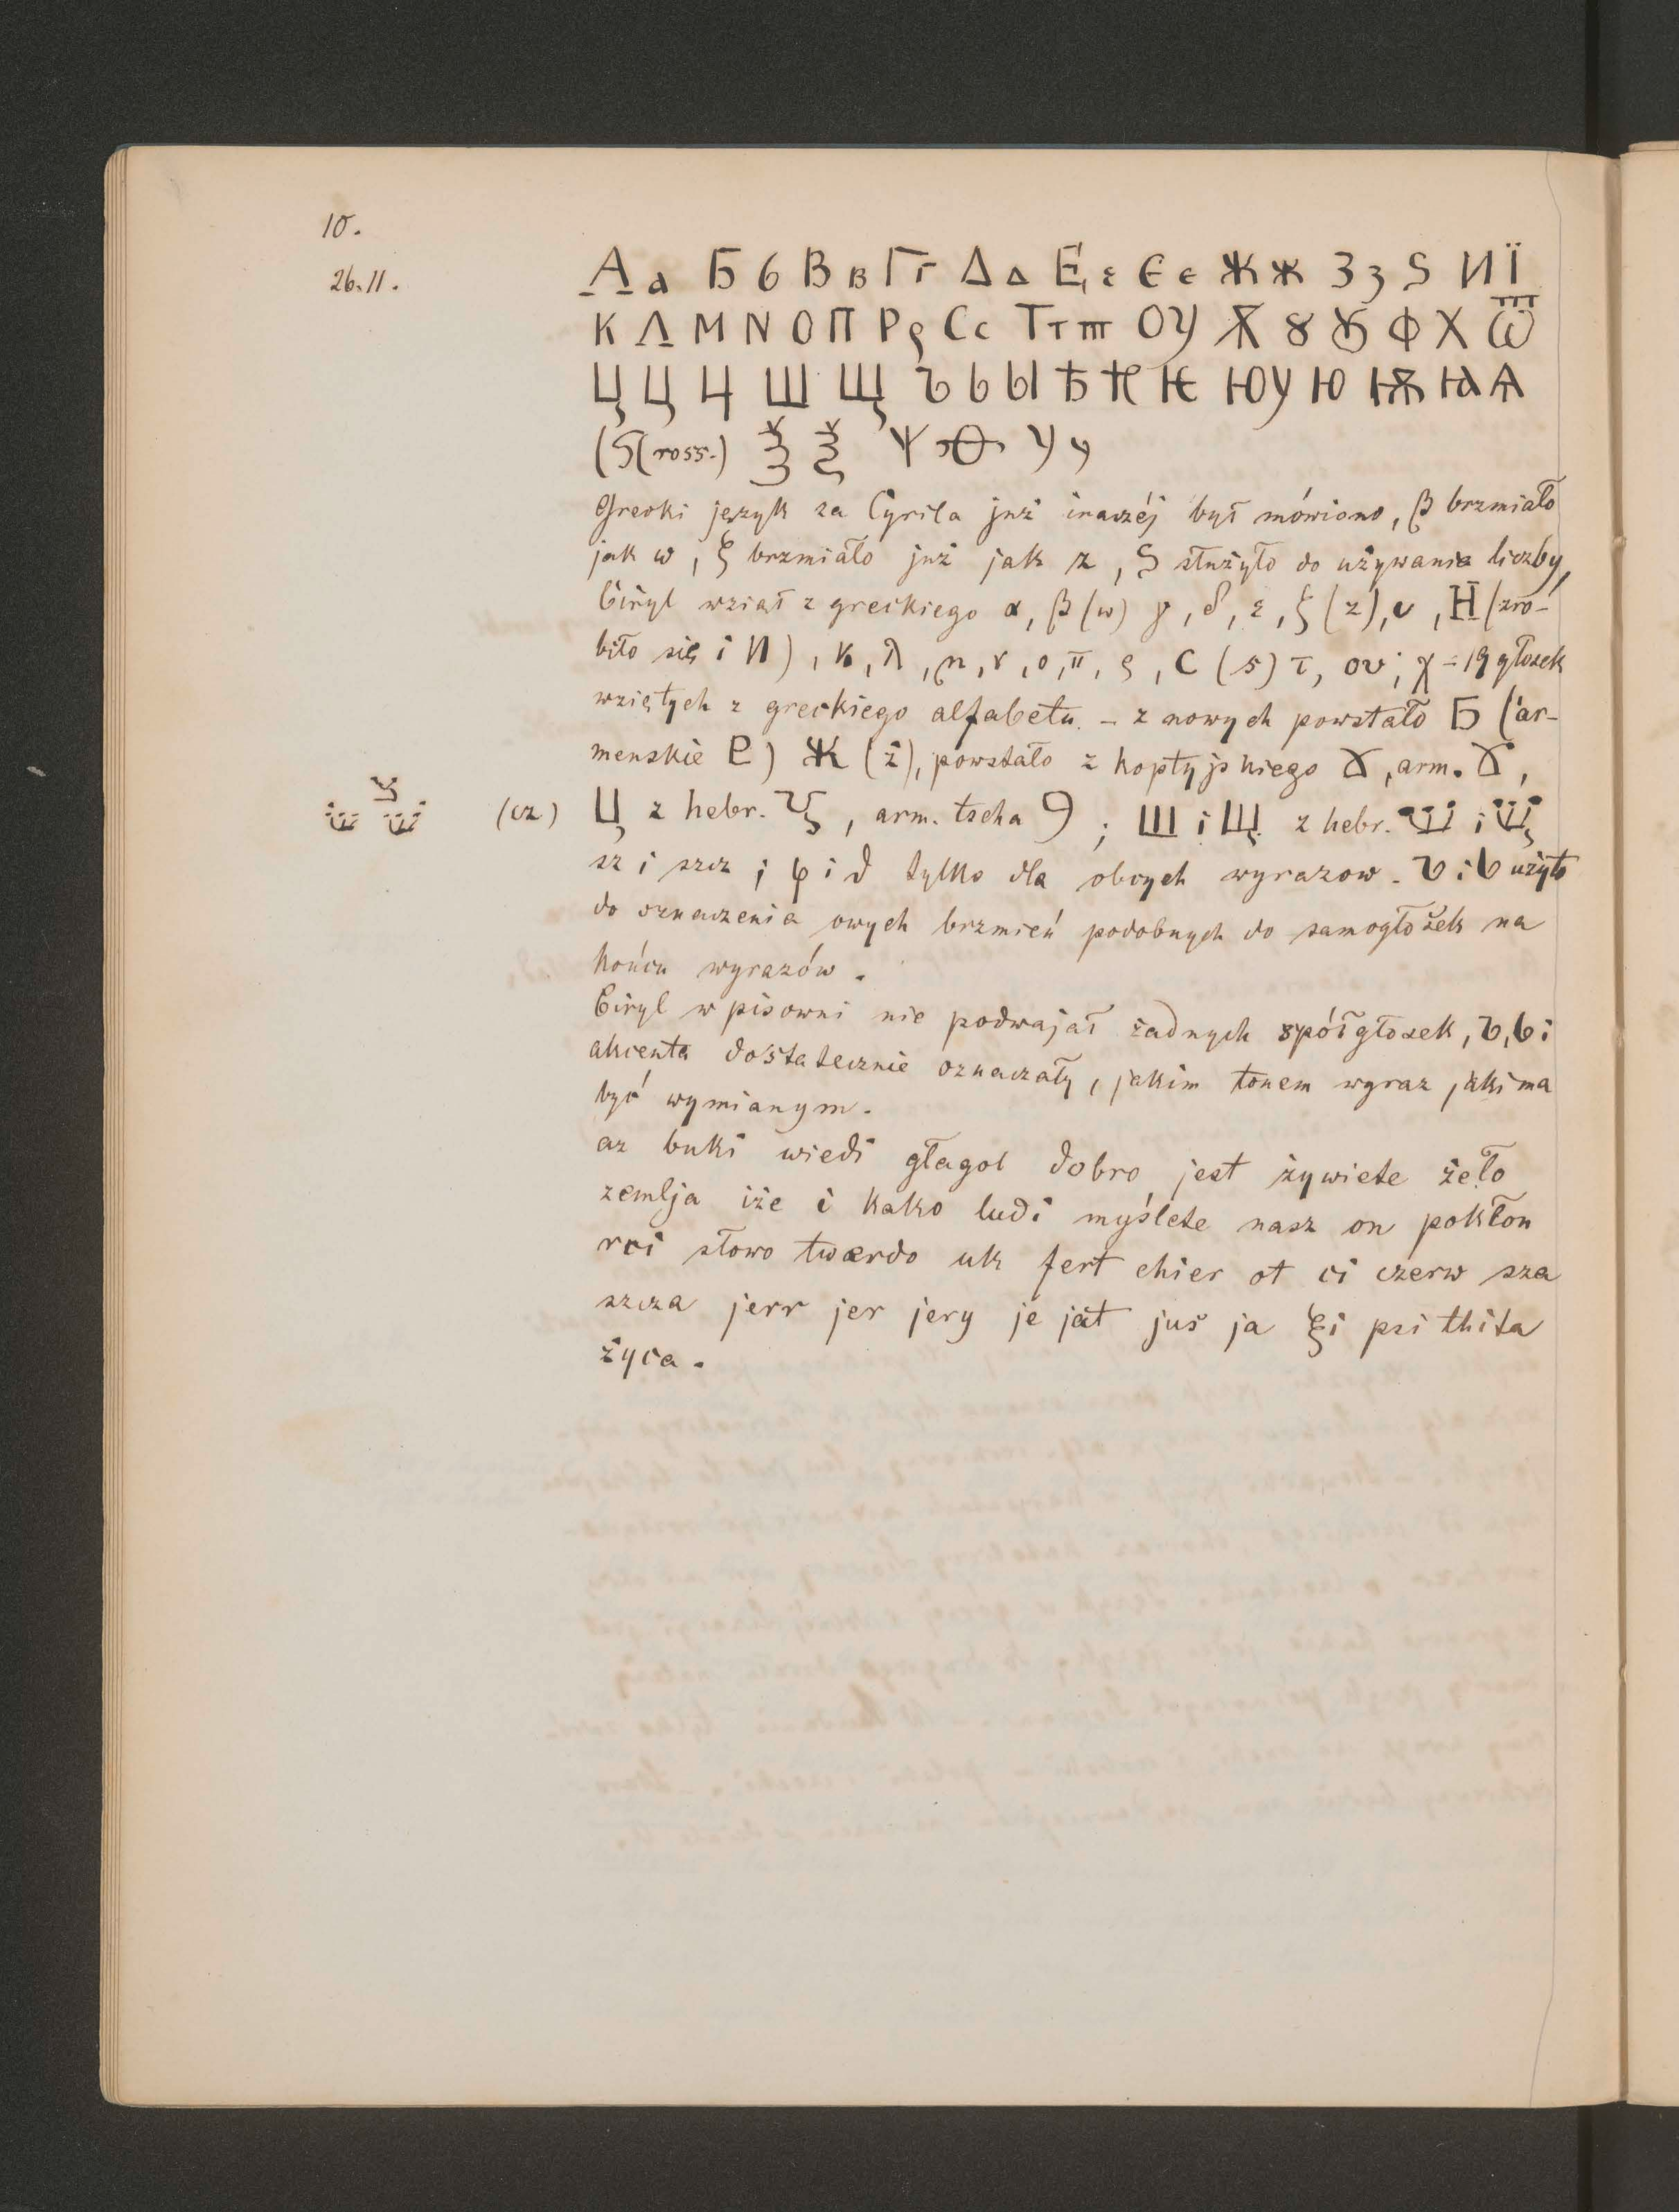 10.
26.11.
А а Б б В в Г г Δ Δ Е ε Є є Ж ж З з Ѕ И Ї
К Л М N О П Р ρ С с Т т ш ОУ Ѫ 8 Ꙋ Ф Х Ѿ
Ц Ц Ч Ш Щ Ъ Ь Ы Ѣ Ѥ ЮУ Ю Ѭ Ꙗ Ѧ
(Ѕ(ross.) Ѯ Ѯ Ѱ Ѳ У у
Grecki język za Cyrila już inaczéj był mówiono, β brzmiało
jak w, ξ brzmiało już jak z, Ѕ służyło do używania liczby,
Ciryl wziął z greckiego α, β (w) γ, δ, ε, ξ (z), υ, H (zro-
biło się i И), к, λ, m, ν, o, π, ρ, С (s) τ, ου, χ = 19 głosek
wziętych z greckiego alfabetu. – z nowych powstało Б (ar-
menskie Ը) Ж (ż), powstało z koptyjskiego Ɣ, arm. Ɣ,
(cz) Ц z hebr. ץ, arm. tscha Ϥ; Ш i Щ z hebr. שׁ i שׁ
sz i szcz; φ i ϑ tylko dla obcych wyrazow. Ъ i Ь użyto
do oznaczenia owych brzmień podobnych do samogłosek na
końcu wyrazów.
Ciryl w pisowni nie podwajał żadnych spółgłosek, ъ, ь i
akcenta dostatecznie oznaczały, jakim tonem wyraz jaki ma
być wymianym.
az buki wiedi głagol dobro jest żywiete żeło
zemlja iże i kako ludi myślete nasz on pokłon
rci słowo twerdo uk fert chier ot ci czerw sza
szcza jerr jer jery je jat jus ja ξi psi thita
życa.